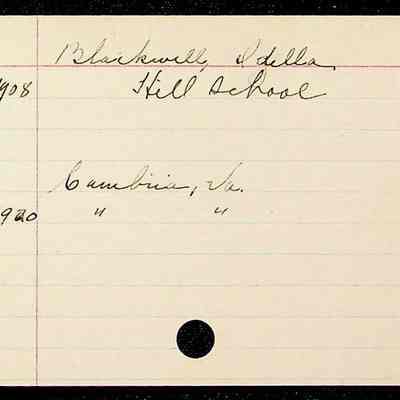 Blackwell, Idella
1908 Hill School
Cambria, Va.
1920 " "